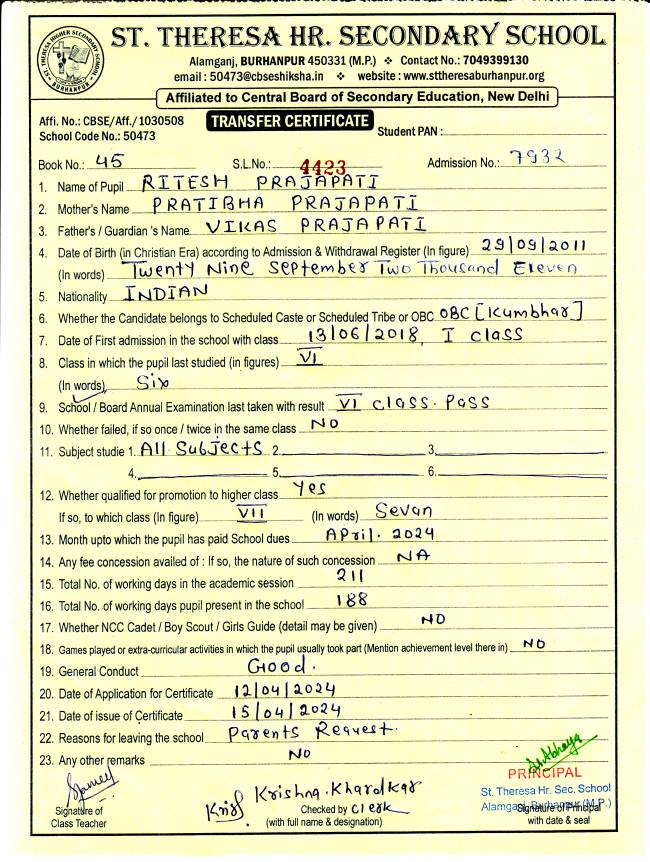 ST. THERESA HIGHER SECONDARY SCHOOL
BURHANPUR
ST. THERESA HR. SECONDARY SCHOOL
Alamganj, BURHANPUR 450331 (M.P.) ❖ Contact No.: 7049399130
email : 50473@cbseshiksha.in ❖ website : www.sttheresaburhanpur.org
Affiliated to Central Board of Secondary Education, New Delhi
Affi. No.: CBSE/Aff./1030508
School Code No.: 50473
TRANSFER CERTIFICATE
Student PAN :
Book No.: 45 S.L.No.: 4423 Admission No.: 7932
1. Name of Pupil RITESH PRAJAPATI
2. Mother's Name PRATIBHA PRAJAPATI
3. Father's / Guardian 's Name VIKAS PRAJAPATI
4. Date of Birth (in Christian Era) according to Admission & Withdrawal Register (In figure) 29/09/2011
(In words) Twenty Nine September Two Thousand Eleven
5. Nationality INDIAN
6. Whether the Candidate belongs to Scheduled Caste or Scheduled Tribe or OBC OBC [Kumbhar]
7. Date of First admission in the school with class 13/06/2018, I class
8. Class in which the pupil last studied (in figures) VI
(In words) Six
9. School / Board Annual Examination last taken with result VI class. Pass
10. Whether failed, if so once / twice in the same class NO
11. Subject studie 1. All Subjects 2. 3.
4. 5. 6.
12. Whether qualified for promotion to higher class Yes
If so, to which class (In figure) VII (In words) Sevan
13. Month upto which the pupil has paid School dues April. 2024
14. Any fee concession availed of : If so, the nature of such concession NA
15. Total No. of working days in the academic session 211
16. Total No. of working days pupil present in the school 188
17. Whether NCC Cadet / Boy Scout / Girls Guide (detail may be given) NO
18. Games played or extra-curricular activities in which the pupil usually took part (Mention achievement level there in) NO
19. General Conduct Good.
20. Date of Application for Certificate 12/04/2024
21. Date of issue of Certificate 15/04/2024
22. Reasons for leaving the school Parents Request.
23. Any other remarks NO
PRINCIPAL
St. Theresa Hr. Sec. School
Alamganj, Burhanpur (M.P.)
Krishna. Khardkar
Signature of
Class Teacher
Checked by Clerk
(with full name & designation)
Signature of Principal
with date & seal